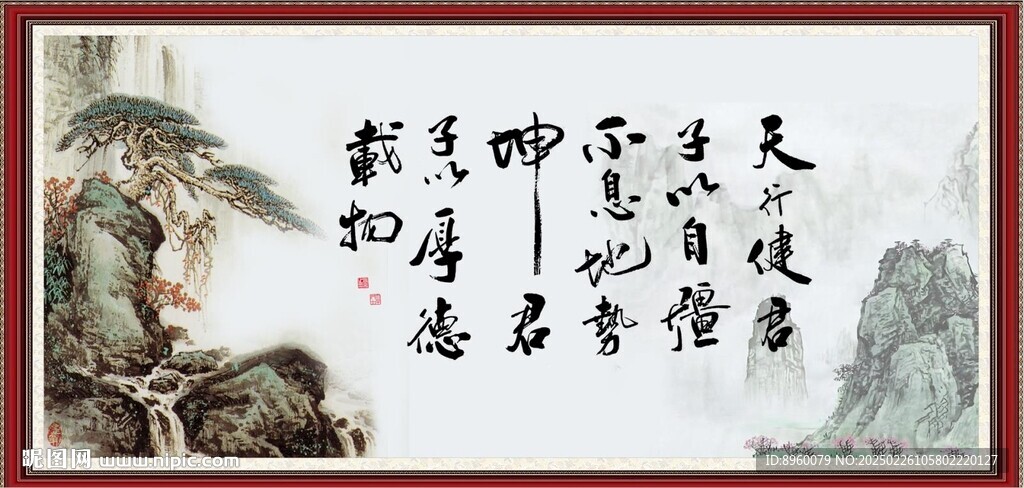 天行健君
子以自彊
不息地勢
坤君
子以厚德
載物
昵图网 www.nipic.com
ID:8960079 NO:20250226105802220127